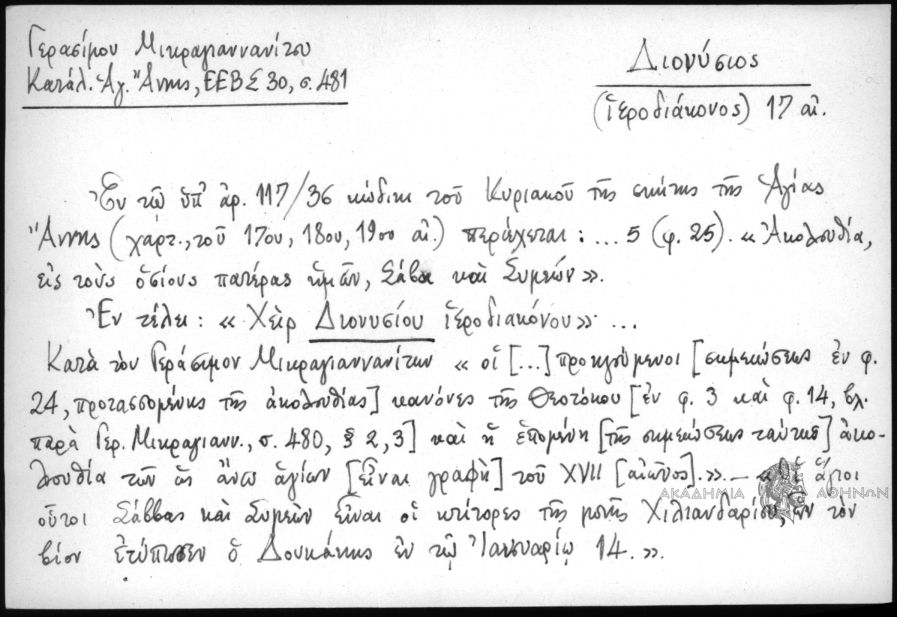 Γερασίμου Μικραγιαννανίτου
Κατάλ. Ἁγ. Ἄννης, ΕΕΒΣ 30, σ. 481
Διονύσιος
(ἱεροδιάκονος) 17 αἰ.
Ἐν τῷ ὑπ' ἀρ. 117/36 κώδικι τοῦ Κυριακοῦ τῆς σκήτης τῆς Ἁγίας
Ἄννης (χάρτ., τοῦ 17ου, 18ου, 19ου αἰ.) περιέχεται: ... 5 (φ. 25). «Ἀκολουθία,
εἰς τοὺς ὁσίους πατέρας ἡμῶν, Σάβα καὶ Συμεών».
Ἐν τέλει: «Χεὶρ Διονυσίου ἱεροδιακόνου» ...
Κατὰ τὸν Γεράσιμον Μικραγιαννανίτην «οἱ [...] προηγούμενοι [σημειώσεως ἐν φ.
24, προτασσομένης τῆς ἀκολουθίας] κανόνες τῆς Θεοτόκου [ἐν φ. 3 καὶ φ. 14, βλ.
παρὰ Γερ. Μικραγιανν., σ. 480, § 2, 3] καὶ ἡ ἑπομένη [τῆς σημειώσεως ταύτης] ἀκο-
λουθία τῶν ὡς ἄνω ἁγίων [εἶναι γραφὴ] τοῦ XVII [αἰῶνος].» — «οἱ ἅγιοι
οὗτοι Σάββας καὶ Συμεὼν εἶναι οἱ κτίτορες τῆς μονῆς Χιλιανδαρίου, ὧν τὸν
βίον ἐτύπωσεν ὁ Δουκάκης ἐν τῷ Ἰανουαρίῳ 14.».
ΑΚΑΔΗΜΙΑ ΑΘΗΝΩΝ